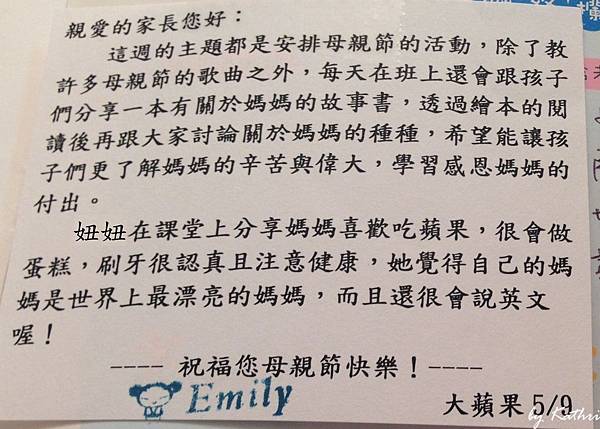 親愛的家長您好：
這週的主題都是安排母親節的活動，除了教
許多母親節的歌曲之外，每天在班上還會跟孩子
們分享一本有關於媽媽的故事書，透過繪本的閱
讀後再跟大家討論關於媽媽的種種，希望能讓孩
子們更了解媽媽的辛苦與偉大，學習感恩媽媽的
付出。
妞妞在課堂上分享媽媽喜歡吃蘋果，很會做
蛋糕，刷牙很認真且注意健康，她覺得自己的媽
媽是世界上最漂亮的媽媽，而且還很會說英文
喔！
---- 祝福您母親節快樂！----
Emily
大蘋果 5/9
欄